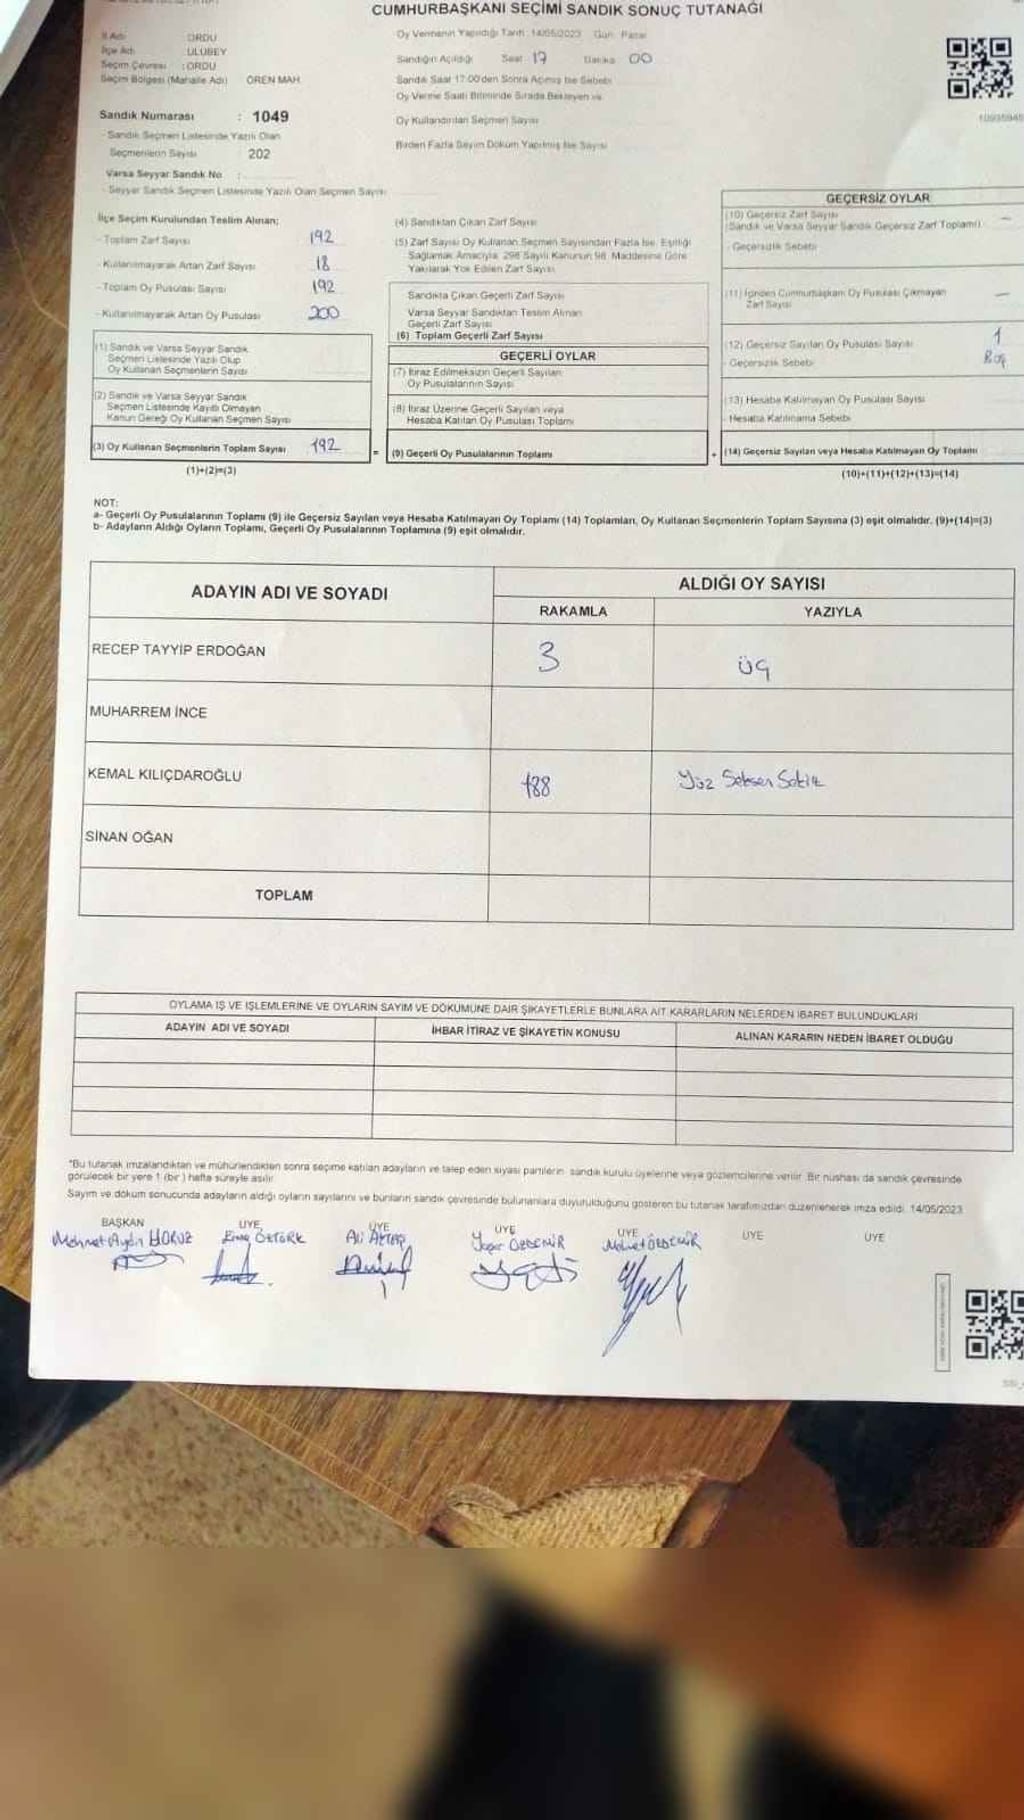 CUMHURBAŞKANI SEÇİMİ SANDIK SONUÇ TUTANAĞI
İl Adı : ORDU
İlçe Adı : ULUBEY
Seçim Çevresi : ORDU
Seçim Bölgesi (Mahalle Adı) ÖREN MAH.
Sandık Numarası : 1049
- Sandık Seçmen Listesinde Yazılı Olan
Seçmenlerin Sayısı 202
Varsa Seyyar Sandık No :
- Seyyar Sandık Seçmen Listesinde Yazılı Olan Seçmen Sayısı
Oy Vermenin Yapıldığı Tarih : 14/05/2023 Gün : Pazar
Sandığın Açıldığı Saat 17 Dakika 00
Sandık Saat 17:00'den Sonra Açılmış İse Sebebi
Oy Verme Saati Bitiminde Sırada Bekleyen ve
Oy Kullandırılan Seçmen Sayısı
Birden Fazla Sayım Döküm Yapılmış İse Sayısı
İlçe Seçim Kurulundan Teslim Alınan;
- Toplam Zarf Sayısı 192
- Kullanılmayarak Artan Zarf Sayısı 18
- Toplam Oy Pusulası Sayısı 192
- Kullanılmayarak Artan Oy Pusulası 200
(1) Sandık ve Varsa Seyyar Sandık
Seçmen Listesinde Yazılı Olup
Oy Kullanan Seçmenlerin Sayısı
(2) Sandık ve Varsa Seyyar Sandık
Seçmen Listesinde Kayıtlı Olmayan
Kanun Gereği Oy Kullanan Seçmen Sayısı
(3) Oy Kullanan Seçmenlerin Toplam Sayısı 192
(1)+(2)=(3)
=
(4) Sandıktan Çıkan Zarf Sayısı
(5) Zarf Sayısı Oy Kullanan Seçmen Sayısından Fazla İse, Eşitliği
Sağlamak Amacıyla, 298 Sayılı Kanunun 98. Maddesine Göre
Yakılarak Yok Edilen Zarf Sayısı
Sandıkta Çıkan Geçerli Zarf Sayısı
Varsa Seyyar Sandıktan Teslim Alınan
Geçerli Zarf Sayısı
(6) Toplam Geçerli Zarf Sayısı
GEÇERLİ OYLAR
(7) İtiraz Edilmeksizin Geçerli Sayılan
Oy Pusulalarının Sayısı
(8) İtiraz Üzerine Geçerli Sayılan veya
Hesaba Katılan Oy Pusulası Toplamı
(9) Geçerli Oy Pusulalarının Toplamı
+
GEÇERSİZ OYLAR
(10) Geçersiz Zarf Sayısı —
(Sandık ve Varsa Seyyar Sandık Geçersiz Zarf Toplamı)
- Geçersizlik Sebebi
(11) İçinden Cumhurbaşkanı Oy Pusulası Çıkmayan —
Zarf Sayısı
(12) Geçersiz Sayılan Oy Pusulası Sayısı 1
- Geçersizlik Sebebi Boş
(13) Hesaba Katılmayan Oy Pusulası Sayısı
- Hesaba Katılmama Sebebi
(14) Geçersiz Sayılan veya Hesaba Katılmayan Oy Toplamı
(10)+(11)+(12)+(13)=(14)
NOT:
a- Geçerli Oy Pusulalarının Toplamı (9) ile Geçersiz Sayılan veya Hesaba Katılmayan Oy Toplamı (14) Toplamları, Oy Kullanan Seçmenlerin Toplam Sayısına (3) eşit olmalıdır. (9)+(14)=(3)
b- Adayların Aldığı Oyların Toplamı, Geçerli Oy Pusulalarının Toplamına (9) eşit olmalıdır.
ADAYIN ADI VE SOYADI ALDIĞI OY SAYISI
RAKAMLA YAZIYLA
RECEP TAYYİP ERDOĞAN 3 üç
MUHARREM İNCE
KEMAL KILIÇDAROĞLU 188 Yüz Seksen Sekiz
SİNAN OĞAN
TOPLAM
OYLAMA İŞ VE İŞLEMLERİNE VE OYLARIN SAYIM VE DÖKÜMÜNE DAİR ŞİKAYETLERLE BUNLARA AİT KARARLARIN NELERDEN İBARET BULUNDUKLARI
ADAYIN ADI VE SOYADI İHBAR İTİRAZ VE ŞİKAYETİN KONUSU ALINAN KARARIN NEDEN İBARET OLDUĞU
*Bu tutanak imzalandıktan ve mühürlendikten sonra seçime katılan adayların ve talep eden siyasi partilerin sandık kurulu üyelerine veya gözlemcilerine verilir. Bir nüshası da sandık çevresinde
görülecek bir yere 1 (bir ) hafta süreyle asılır.
Sayım ve döküm sonucunda adayların aldığı oyların sayılarını ve bunların sandık çevresinde bulunanlara duyurulduğunu gösteren bu tutanak tarafımızdan düzenlenerek imza edildi. 14/05/2023
BAŞKAN ÜYE ÜYE ÜYE ÜYE ÜYE ÜYE
Mehmet Aydın HORUZ ÖZTÜRK Ali AKTAŞ Yaşar ÖZDEMİR Mehmet ÖZDEMİR